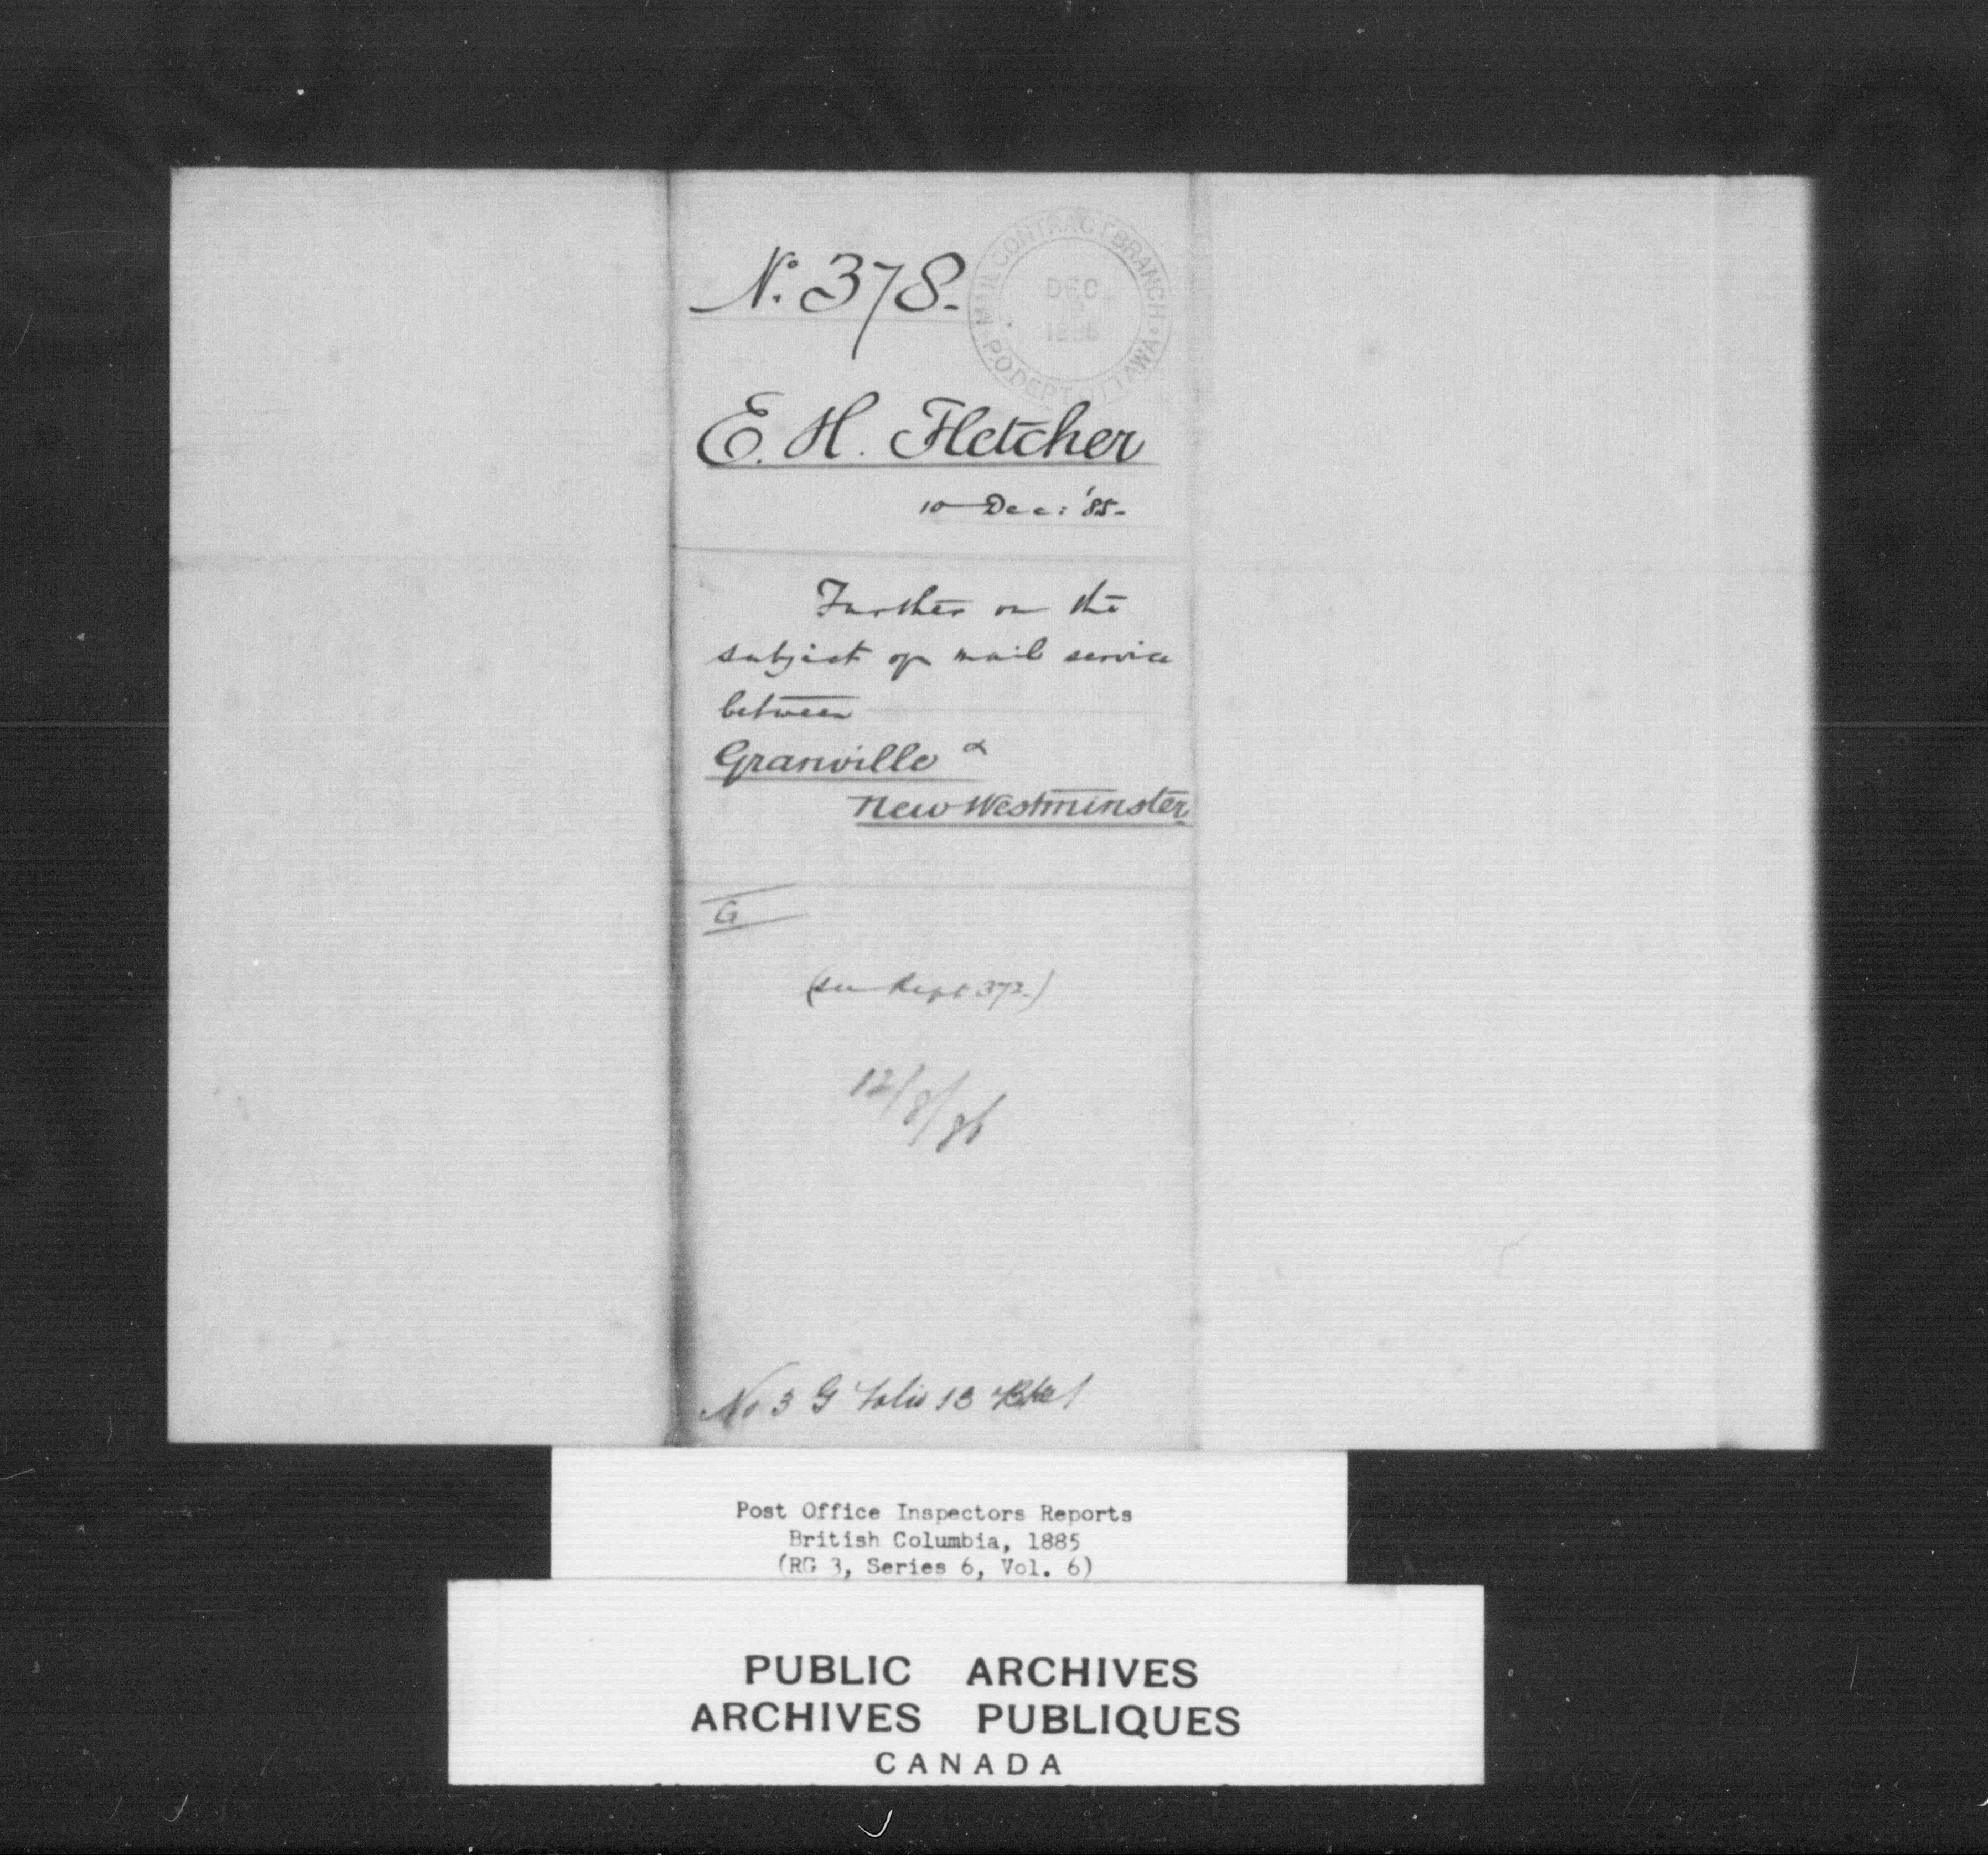 No. 378.
MAIL CONTRACT BRANCH
DEC
1885
P.O. DEPT OTTAWA
E. H. Fletcher
10 Dec: '85-
Further on the
subject of mail service
between
Granville &
New Westminster
G
(see Rept 372.)
12/8/86
No 3 G folio 13
Post Office Inspectors Reports
British Columbia, 1885
(RG 3, Series 6, Vol. 6)
PUBLIC ARCHIVES
ARCHIVES PUBLIQUES
CANADA